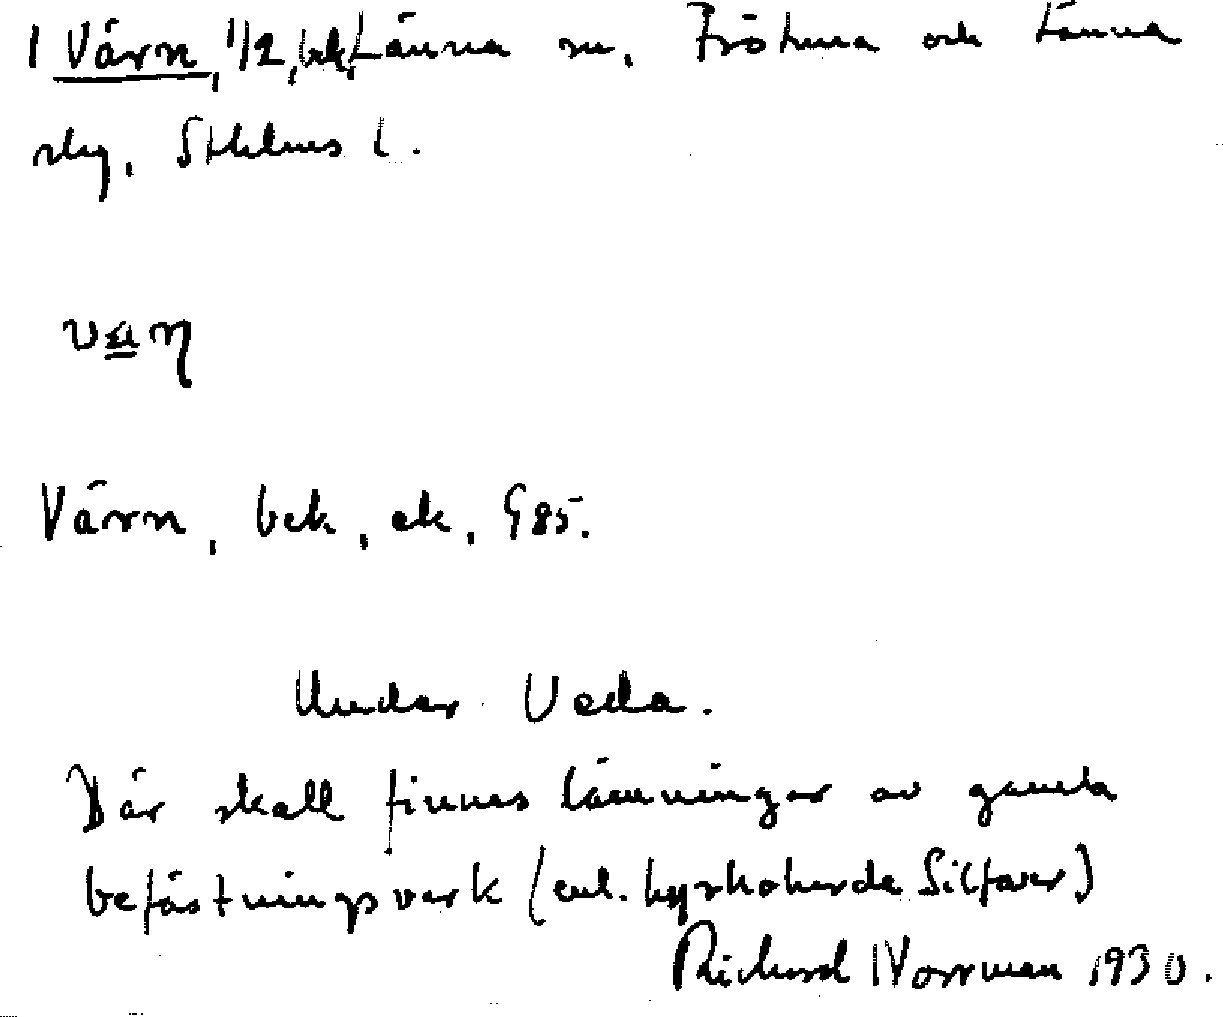 1 Värn, 1/2, bek, Länna sn, Frötuna och Länna
slg, Sthlms l.
vaη
Värn, bek, ek, G 85.
Under Veda.
Där skall finnas lämningar av gamla
befästningsverk (enl. kyrkoherde Silfver)
Richard Norrman 1930.